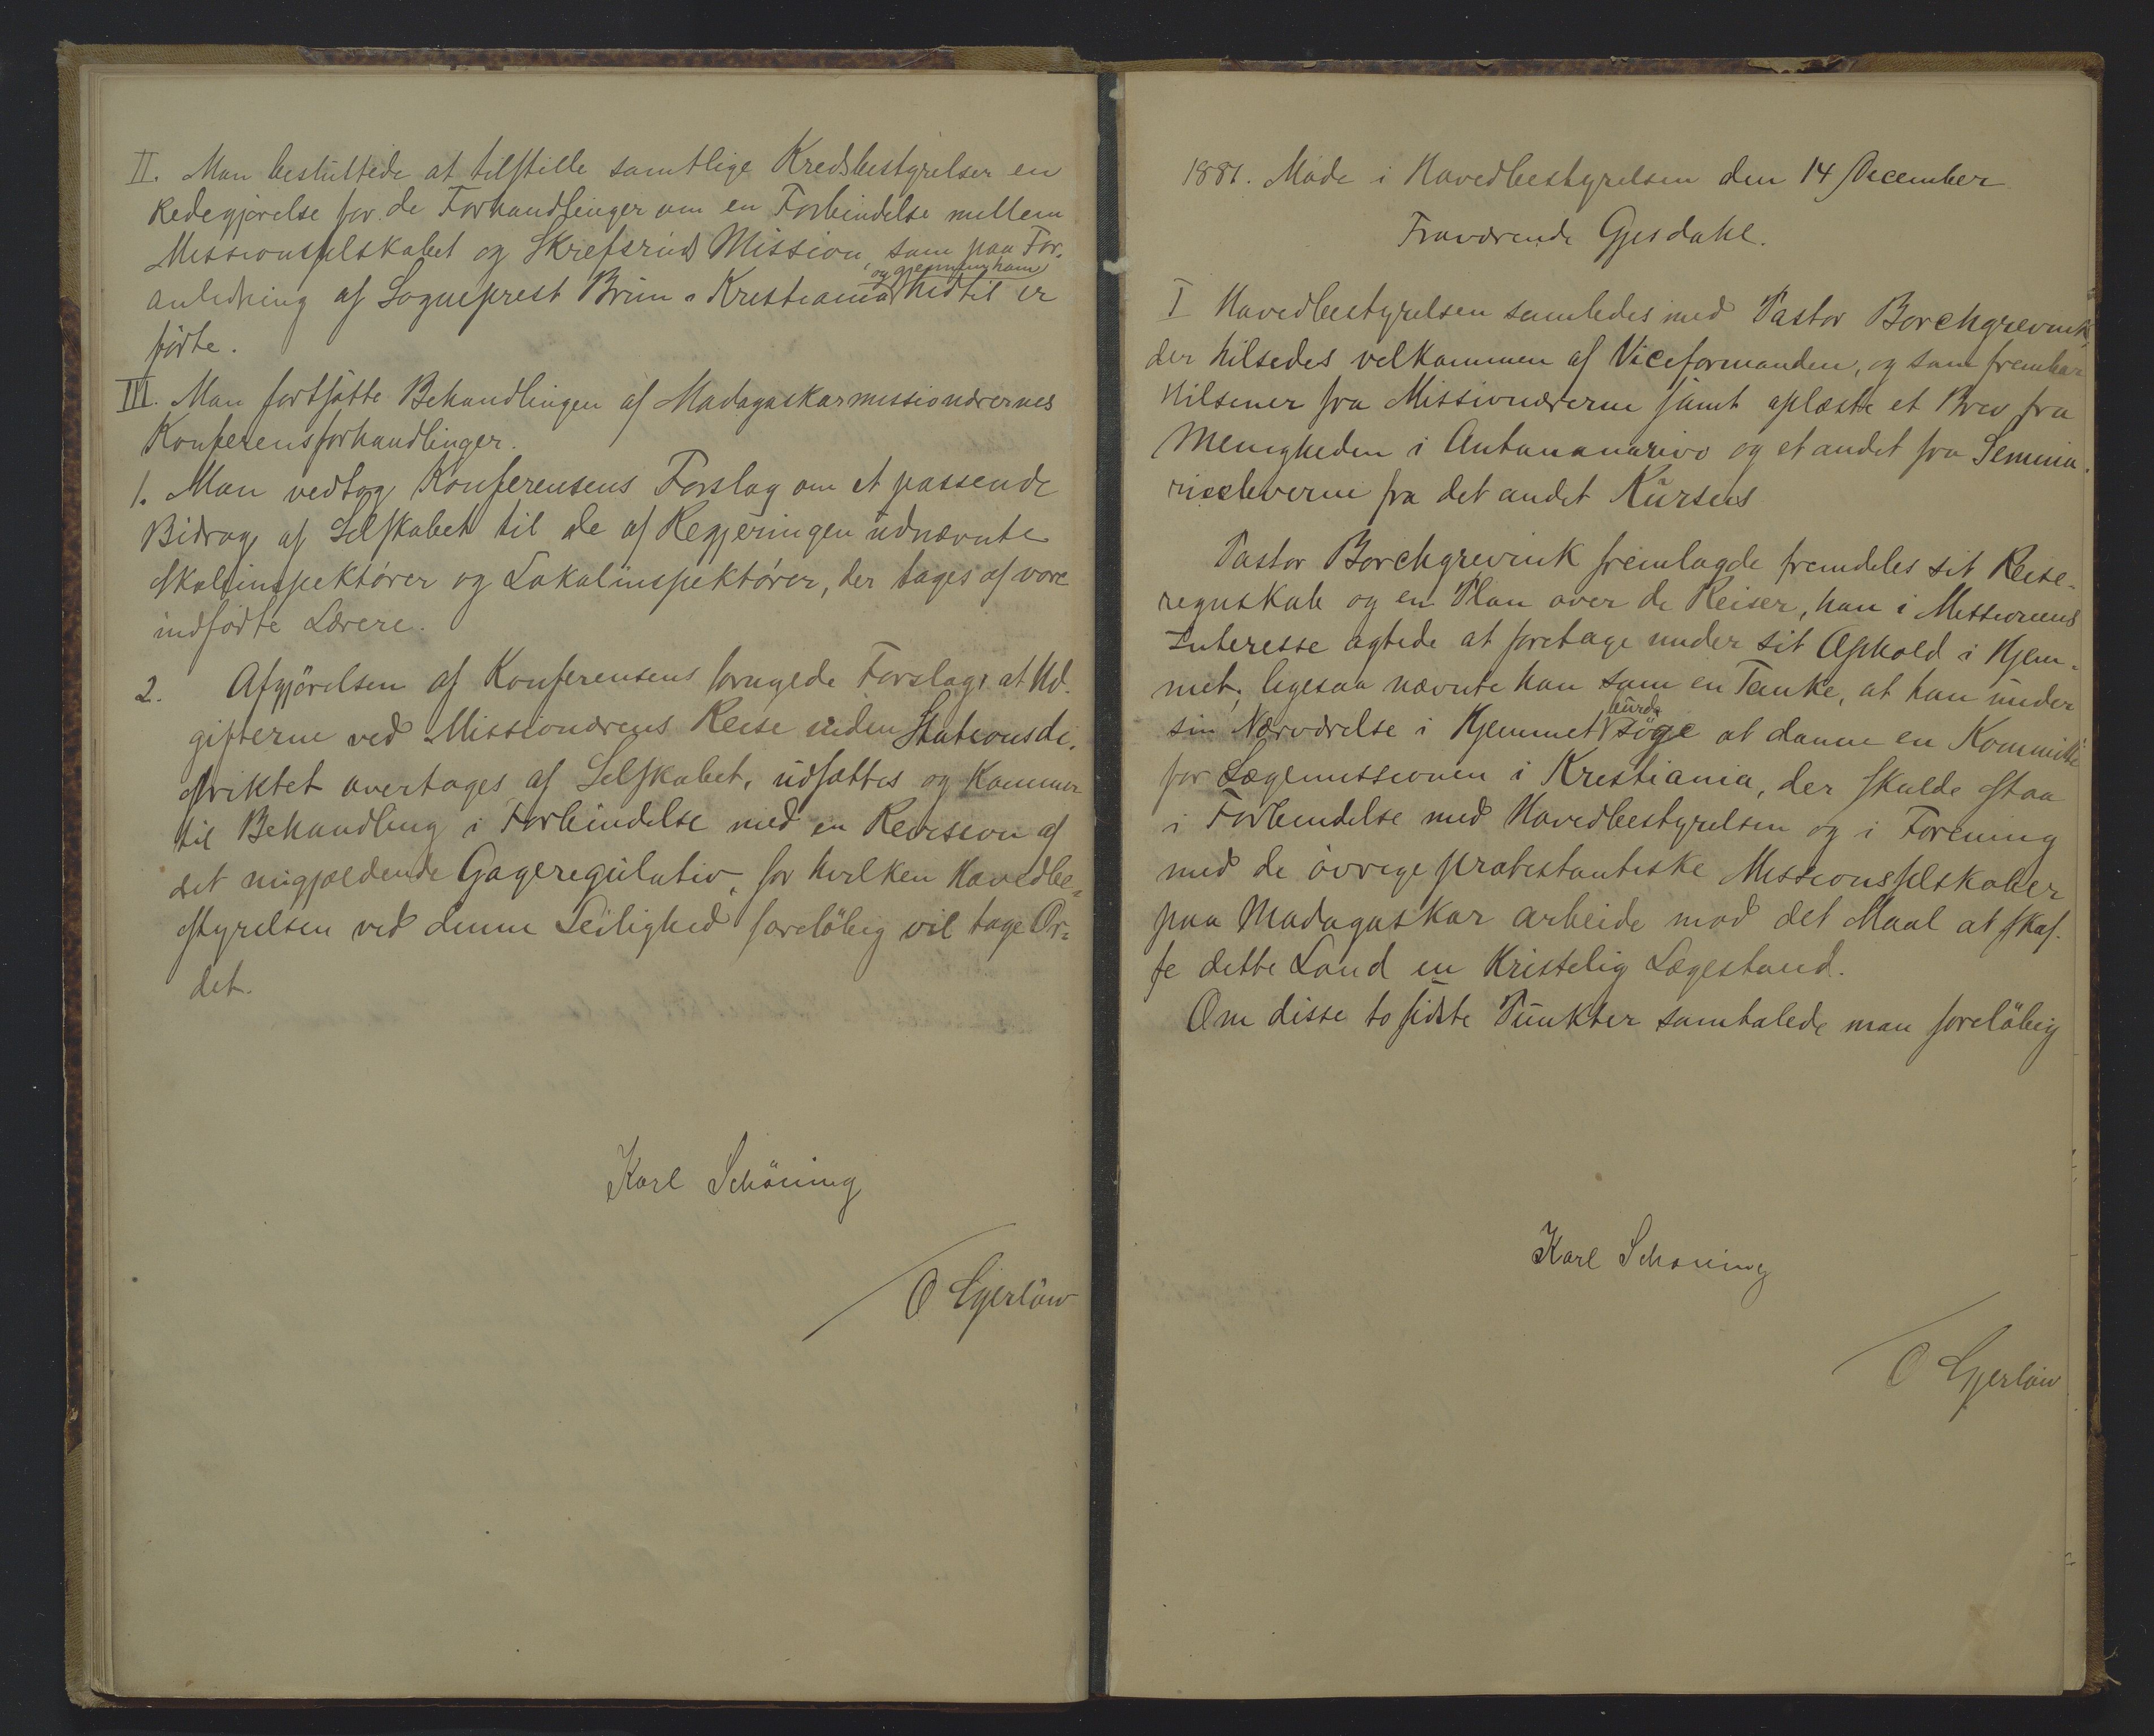 II. Man besluttede at tilstille samtlige Kredsbestyrelser en
Redegjørelse for de Forhandlinger om en Forbindelse mellem
Missionsselskabet og Skrefsruds Mission, som paa For-
og gjennem ham
anledning af Sogneprest Brun i Kristiania hidtil er
førte.
III. Man fortsatte Behandlingen af Madagaskarmissionærernes
Konferensforhandlinger.
1. Man vedtog Konferensens Forslag om et passende
Bidrag af Selskabet til de af Regjeringen udnævnte
Skoleinspektører og Lokalinspektører, der tages af vore
indfødte Lærere.
2. Afgjørelsen af Konferensens forngede Forslag, at Ud-
gifterne ved Missionærens Reise inden Stationsdi-
striktet overtages af Selskabet, udsattes og kommer
til Behandling i Forbindelse med en Revision af
det nugjældende Gageregulativ, for hvilken Hovedbe-
styrelsen ved denne Leilighed foreløbig vil tage Or-
det.
Karl Schöning
O Gjerløw
1881. Møde i Hovedbestyrelsen den 14 December
Fraværende Gjesdahl.
I Hovedbestyrelsen samledes med Pastor Borchgrevink,
der hilsedes velkommen af Viceformanden, og som frembar
Hilsener fra Missionærerne samt oplæste et Brev fra
Menigheden i Antananarivo og et andet fra Semina-
rieeleverne fra det andet Kursus
Pastor Borchgrevink fremlagde fremdeles sit Reise-
regnskab og en Plan over de Reiser, han i Missionens
Interesse agtede at foretage under sit Ophold i Hjem-
met; ligesaa nævnte han som en Tanke, at han under
burde
sin Nærværelse i Hjemmet søge at danne en Kommitte
for Lægemissionen i Kristiania, der skulde staa
i Forbindelse med Hovedbestyrelsen og i Forening
med de øvrige protestantiske Missionsselskaber
paa Madagaskar arbeide mod det Maal at skaf-
fe dette Land en kristelig Lægestand.
Om disse to sidste Punkter samtalede man foreløbig
Karl Schöning
O Gjerløw